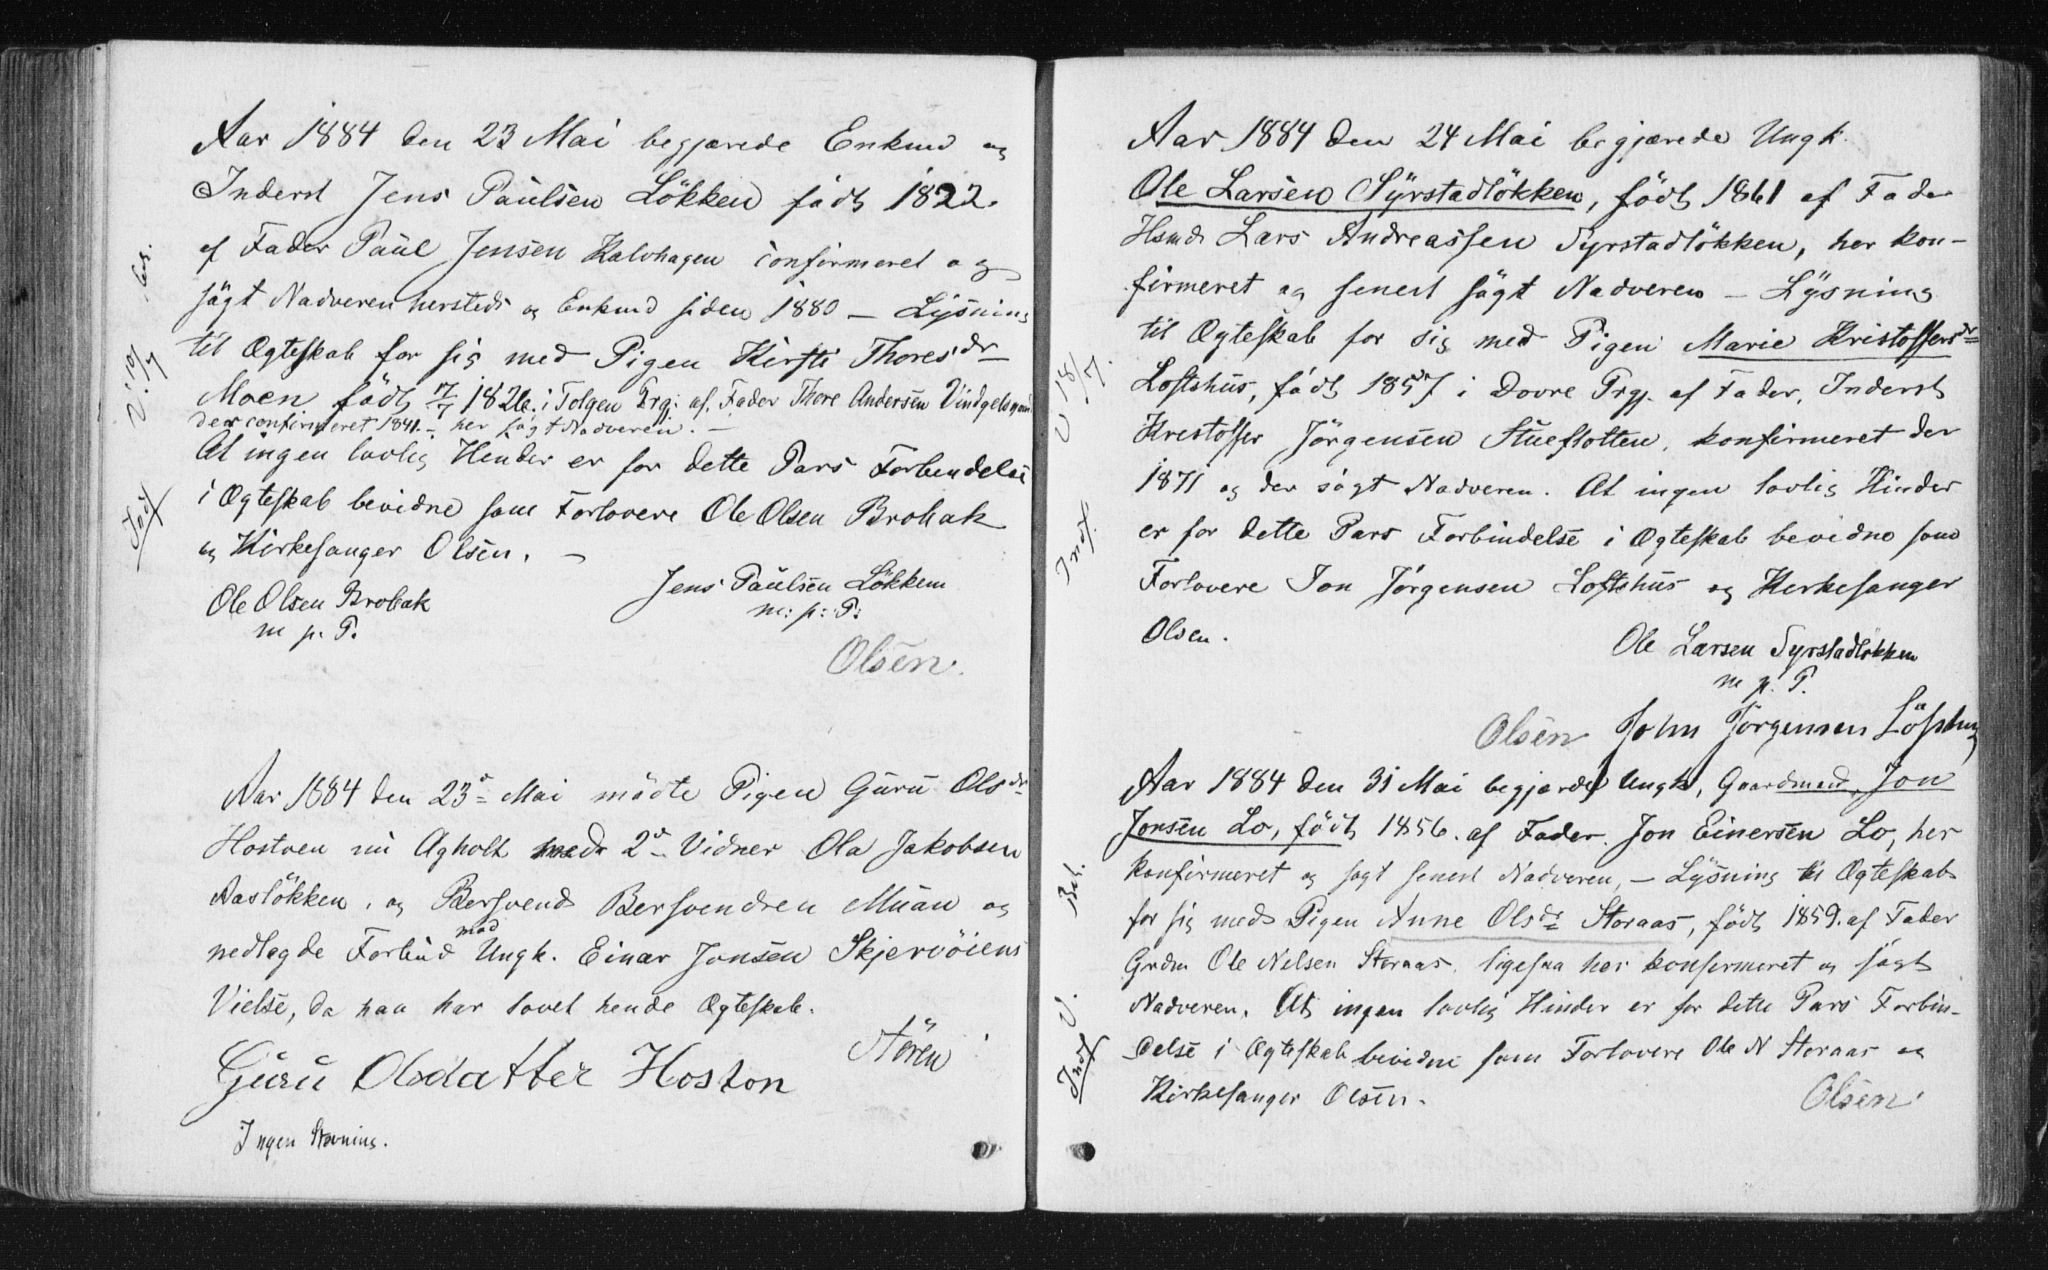 Aar 1884 den 23 Mai begjærede Enkmd og
Inderst Jens Paulsen Løkken født 1822
af Fader Paul Jensen Kalvhagen confirmeret og
søgt Nadveren hersteds og Enkmd siden 1880 — Lysning
til Ægteskab for sig med Pigen Kirsti Thoresdr
Moen født 17/7 1826 i Tolgen Prg: af Fader Thore Andersen
der confirmeret 1841 – her søgt Nadveren. –
At ingen lovlig Hinder er for dette Pars Forbindelse
i Ægteskab bevidne som Forlovere Ole Olsen Brobak
og Kirkesanger Olsen. –
Ole Olsen Brobak
m p. P.
Jens Paulsen Løkken
m: p: P:
Olsen.
Aar 1884 den 23de Mai mödte Pigen Guru Olsdr
Hostoen nu Agholt med 2de Vidner Ola Jakobsen
Aasløkken, og Bersvend Bersvendsen Muan og
nedlagde Forbud mod Ungk. Einar Jonsen Skjervöiens
Vielse, da han har lovet hende Ægteskab.
Stören
Guru Olsdatter Hoston
Ingen Stevning.
Aar 1884 den 24 Mai begjærede Ungk.
Ole Larsen Syrstadløkken, født 1861 af Fader
Hsmd Lars Andreassen Syrstadløkken, her kon-
firmeret og senest søgt Nadveren – Lysning
til Ægteskab for sig med Pigen Marie Kristoffersdr
Loftshus, født 1857 i Dovre Prgj. af Fader, Inderst
Kristoffer Jörgensen Stueflotten, konfirmeret der
1871 og der søgt Nadveren. At ingen lovlig Hinder
er for dette Pars Forbindelse i Ægteskab bevidne som
Forlovere Jon Jörgensen Loftshus og Kirkesanger
Olsen.
Ole Larsen Syrstadløkken
m p. P.
Olsen John Jörgensen
Aar 1884 den 31 Mai begjærede Ungk, Gaardmand Jon
Jonsen Lo, født 1856. af Fader Jon Einersen Lo, her
konfirmeret og søgt senest Nadveren, – Lysning til Ægteskab
for sig med Pigen Anne Olsdr Storaas, født 1859. af Fader
Grdm Ole Nelsen Storaas ligesaa her konfirmeret og søgt
Nadveren. At ingen lovlig Hinder er for dette Pars Forbin-
delse i Ægteskab bevidne som Forlovere Ole N Storaas og
Kirkesanger Olsen.
Olsen.
V. 18/7.
Indf.
Bet.
Indf V.